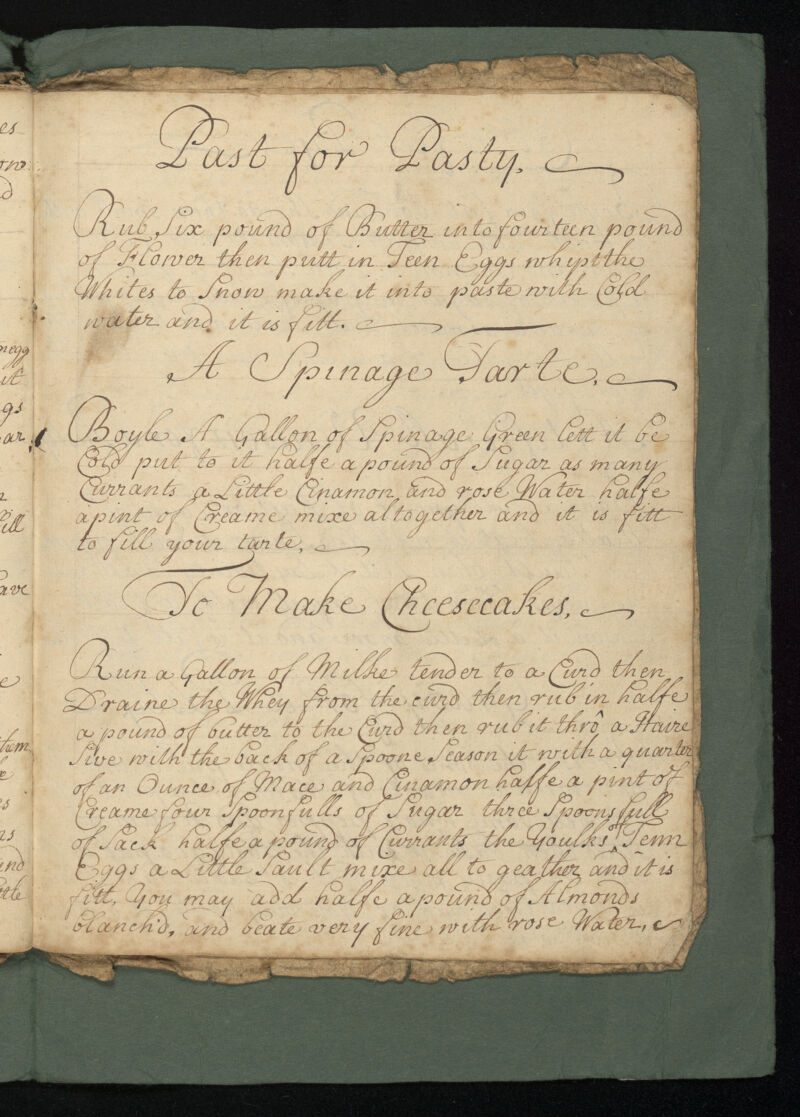 Past for Pasty.
Rub Six pound of Butter into fourteen pound
of Flower then putt in Teen Eggs whipt the
Whites to Snow make it into paste with Cold
water and it is fitt.
A Spinage Tarte.
Boyle A Gallon of Spinage Green lett it be
Cold put to it halfe a pound of Sugar as many
Currants a Little Cinamon and rose Water halfe
a pint of Creame mixe altogether and it is fitt
to fill your tarte.
To Make Cheesecakes.
Run a Gallon of Milke tender to a Curd then
Draine the Whey from the curd then rub in halfe
a pound of butter to the Curd then rub it thrô a Haire
Sive with the back of a Spoone Season it with a quarter
of an Ounce of Mace and Cinamon halfe a pint of
Creame four Spoonfulls of Sugar three Spoonsfull
of Sack halfe a pound of Currants the Youlks of Tenn
Eggs a Little Sault mixe all to geather and it is
fitt. You may add halfe a pound of Almonds
blanch'd, and beate very fine with rose Water.